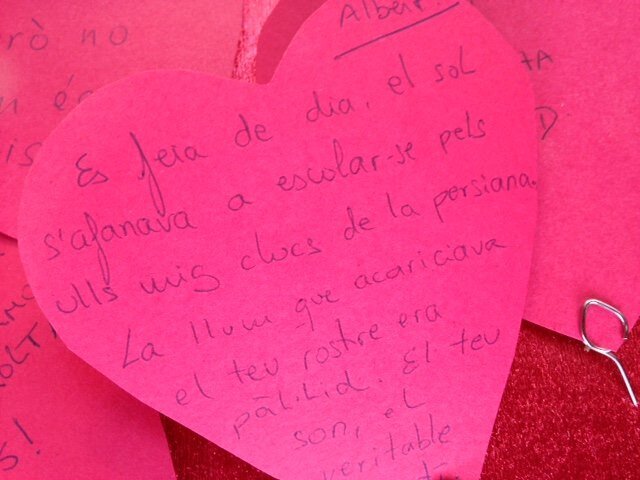 Albert.
Es feia de dia, el sol
s'afanava a escolar-se pels
ulls mig clucs de la persiana.
La llum que acariciava
el teu rostre era
pàl·lid. El teu
son, el
veritable
rò no